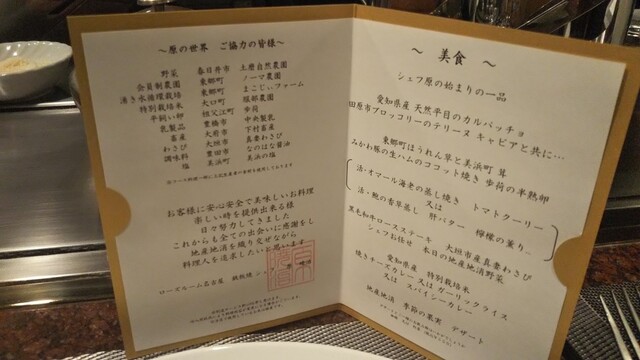 ～原の世界　ご協力の皆様～
野菜　春日井市　土磨自然農園
会員制農園　東郷町　ノーマ農園
湧き水循環栽培　東郷町　まこじぃファーム
特別栽培米　大口町　服部農園
平飼い卵　祖父江町　歩荷
乳製品　豊橋市　中央製乳
畜産　大府市　下村畜産
わさび　大垣市　真妻わさび
調味料　豊田市　なのはな醤油
塩　美浜町　美浜の塩
お客様に安心安全で美味しいお料理
楽しい時を提供出来る様
日々努力してきました
これからも全ての出会いに感謝をし
地産地消を織り交ぜながら
料理人を追求したいと思います
ローズルーム名古屋　鉄板焼
～　美食　～
シェフ原の始まりの一品
愛知県産 天然平目のカルパッチョ
田原市ブロッコリーのテリーヌ キャビアと共に…
東郷町ほうれん草と美浜町 茸
みかわ豚の生ハムのココット焼き 歩荷の半熟卵
活・オマール海老の蒸し焼き　トマトクーリー
又は
活・鮑の香草蒸し　肝バター　檸檬の薫り…
黒毛和牛ロースステーキ　大垣市産真妻わさび
シェフお任せ　本日の地産地消野菜
愛知県産　特別栽培米
焼きチーズカレー 又は ガーリックライス
又は　スパイシーカレー
地産地消　季節の果実　デザート